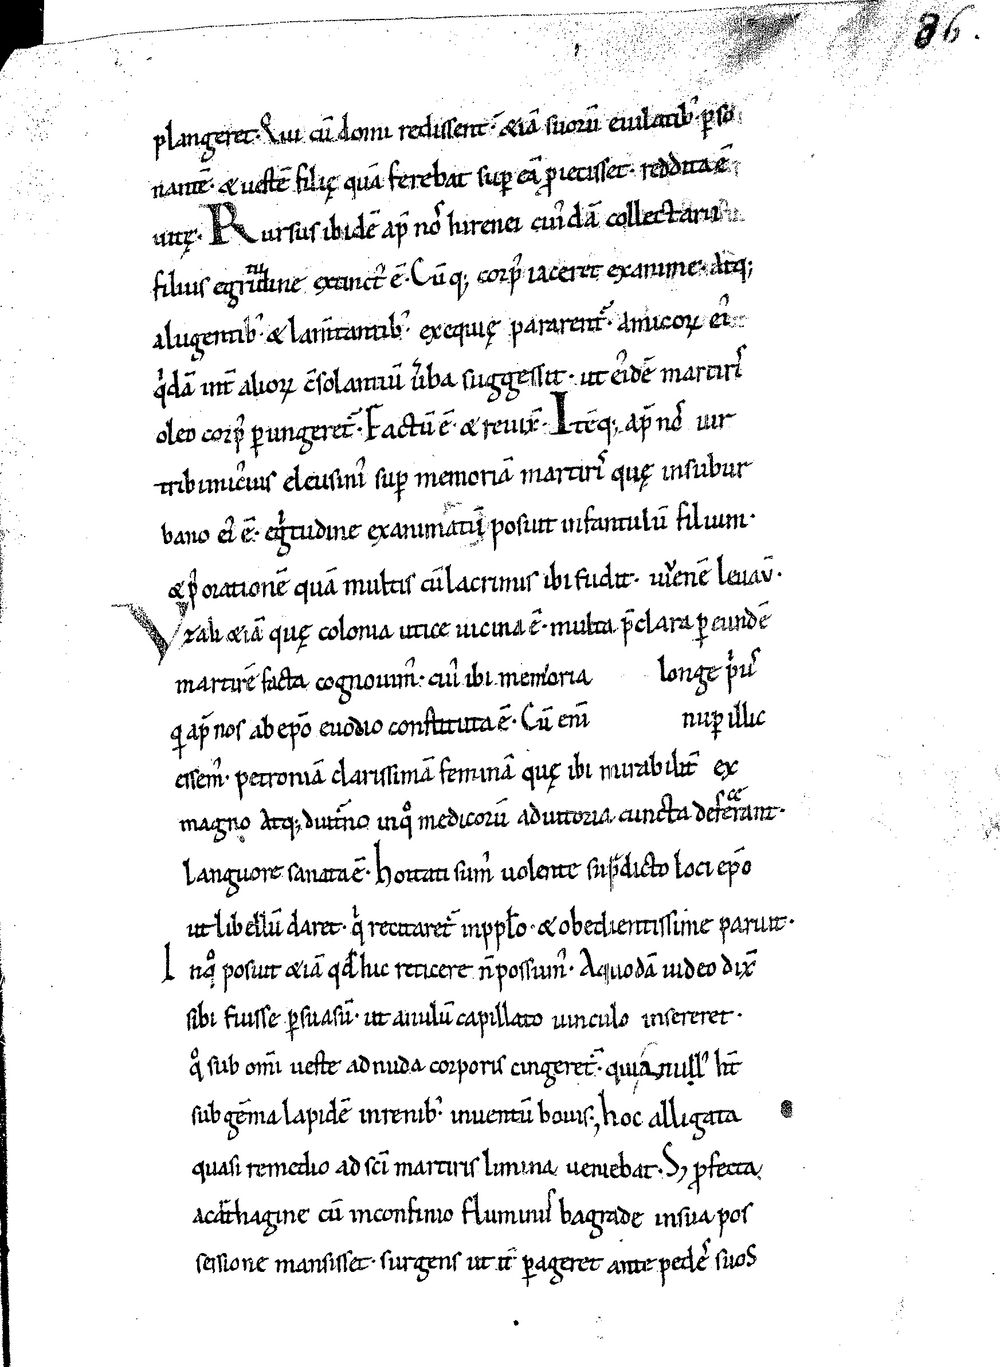 86.
plangeret. Qui cū domū redissent. &iā suorū eiulatib; ꝑso
nantē. & uestē filię quā ferebat suꝑ eā ꝓiecisset. reddita ē
uitę. Rursus ibidē ap̄ nos hirenei cuiꝰdā collectarii
filius egritudine extinctꝰ ē. Cūq; corpꝰ iaceret exanime. Atq;
a lugentib; & lam̄tantib; exequię pararent᷑. Amicoꝝ eiꝰ
qͥdā int̄ alioꝝ c̄solantiū u̾ba suggessit. ut eiꝰdē martirꝭ
oleo corpꝰ ꝑungeret᷑. Factū ē. & reuix̄. Itēq; ap̄ nos uir
tribunicius eleusinꝰ suꝑ memoriā martirꝭ quę in subur
bano eiꝰ ē. eg̾tudine exanimatū posuit infantulū filium.
& p̾ orationē quā multis cū lacrimis ibi fudit. uiuentē leuau̅.
Vzali &iā quę colonia utice uicina ē. multa p̄clara ꝑ eundē
martirē facta cognouimꝰ. cuiꝰ ibi memoria longe pͥus
q̄ ap̄ nos ab ep̄o euodio constituta ē. Cū eni̅ nuꝑ illic
essemꝰ. petroniā clarissimā feminā quę ibi mirabilit̄ ex
magno Atq; diut̄no in qͦ medicorū adiutoria cuncta defecerant.
languore sanata ē. hortati sumꝰ uolente sup̄dicto loci ep̄o
ut libellū daret. qͥ recitaret᷑ in pp̄lo. & obedientissime paruit.
In qͦ posuit &iā qd̄ hic reticere n̄ possumꝰ. A quodā iudeo dix̄
sibi fuisse ꝑsuasū. ut anulū capillato uinculo insereret.
qͦ sub omi̅ ueste ad nuda corporis cingeret᷑. qui anullꝰ h̄t
sub gēma lapidē in renib; inuentū bouis. hoc alligata
quasi remedio ad sc̄i martiris limina ueniebat. S; ꝓfecta
a carthagine cū in confinio fluminis bagrade in sua pos
sessione mansisset. surgens ut it̄ ꝑageret ante pedes suos